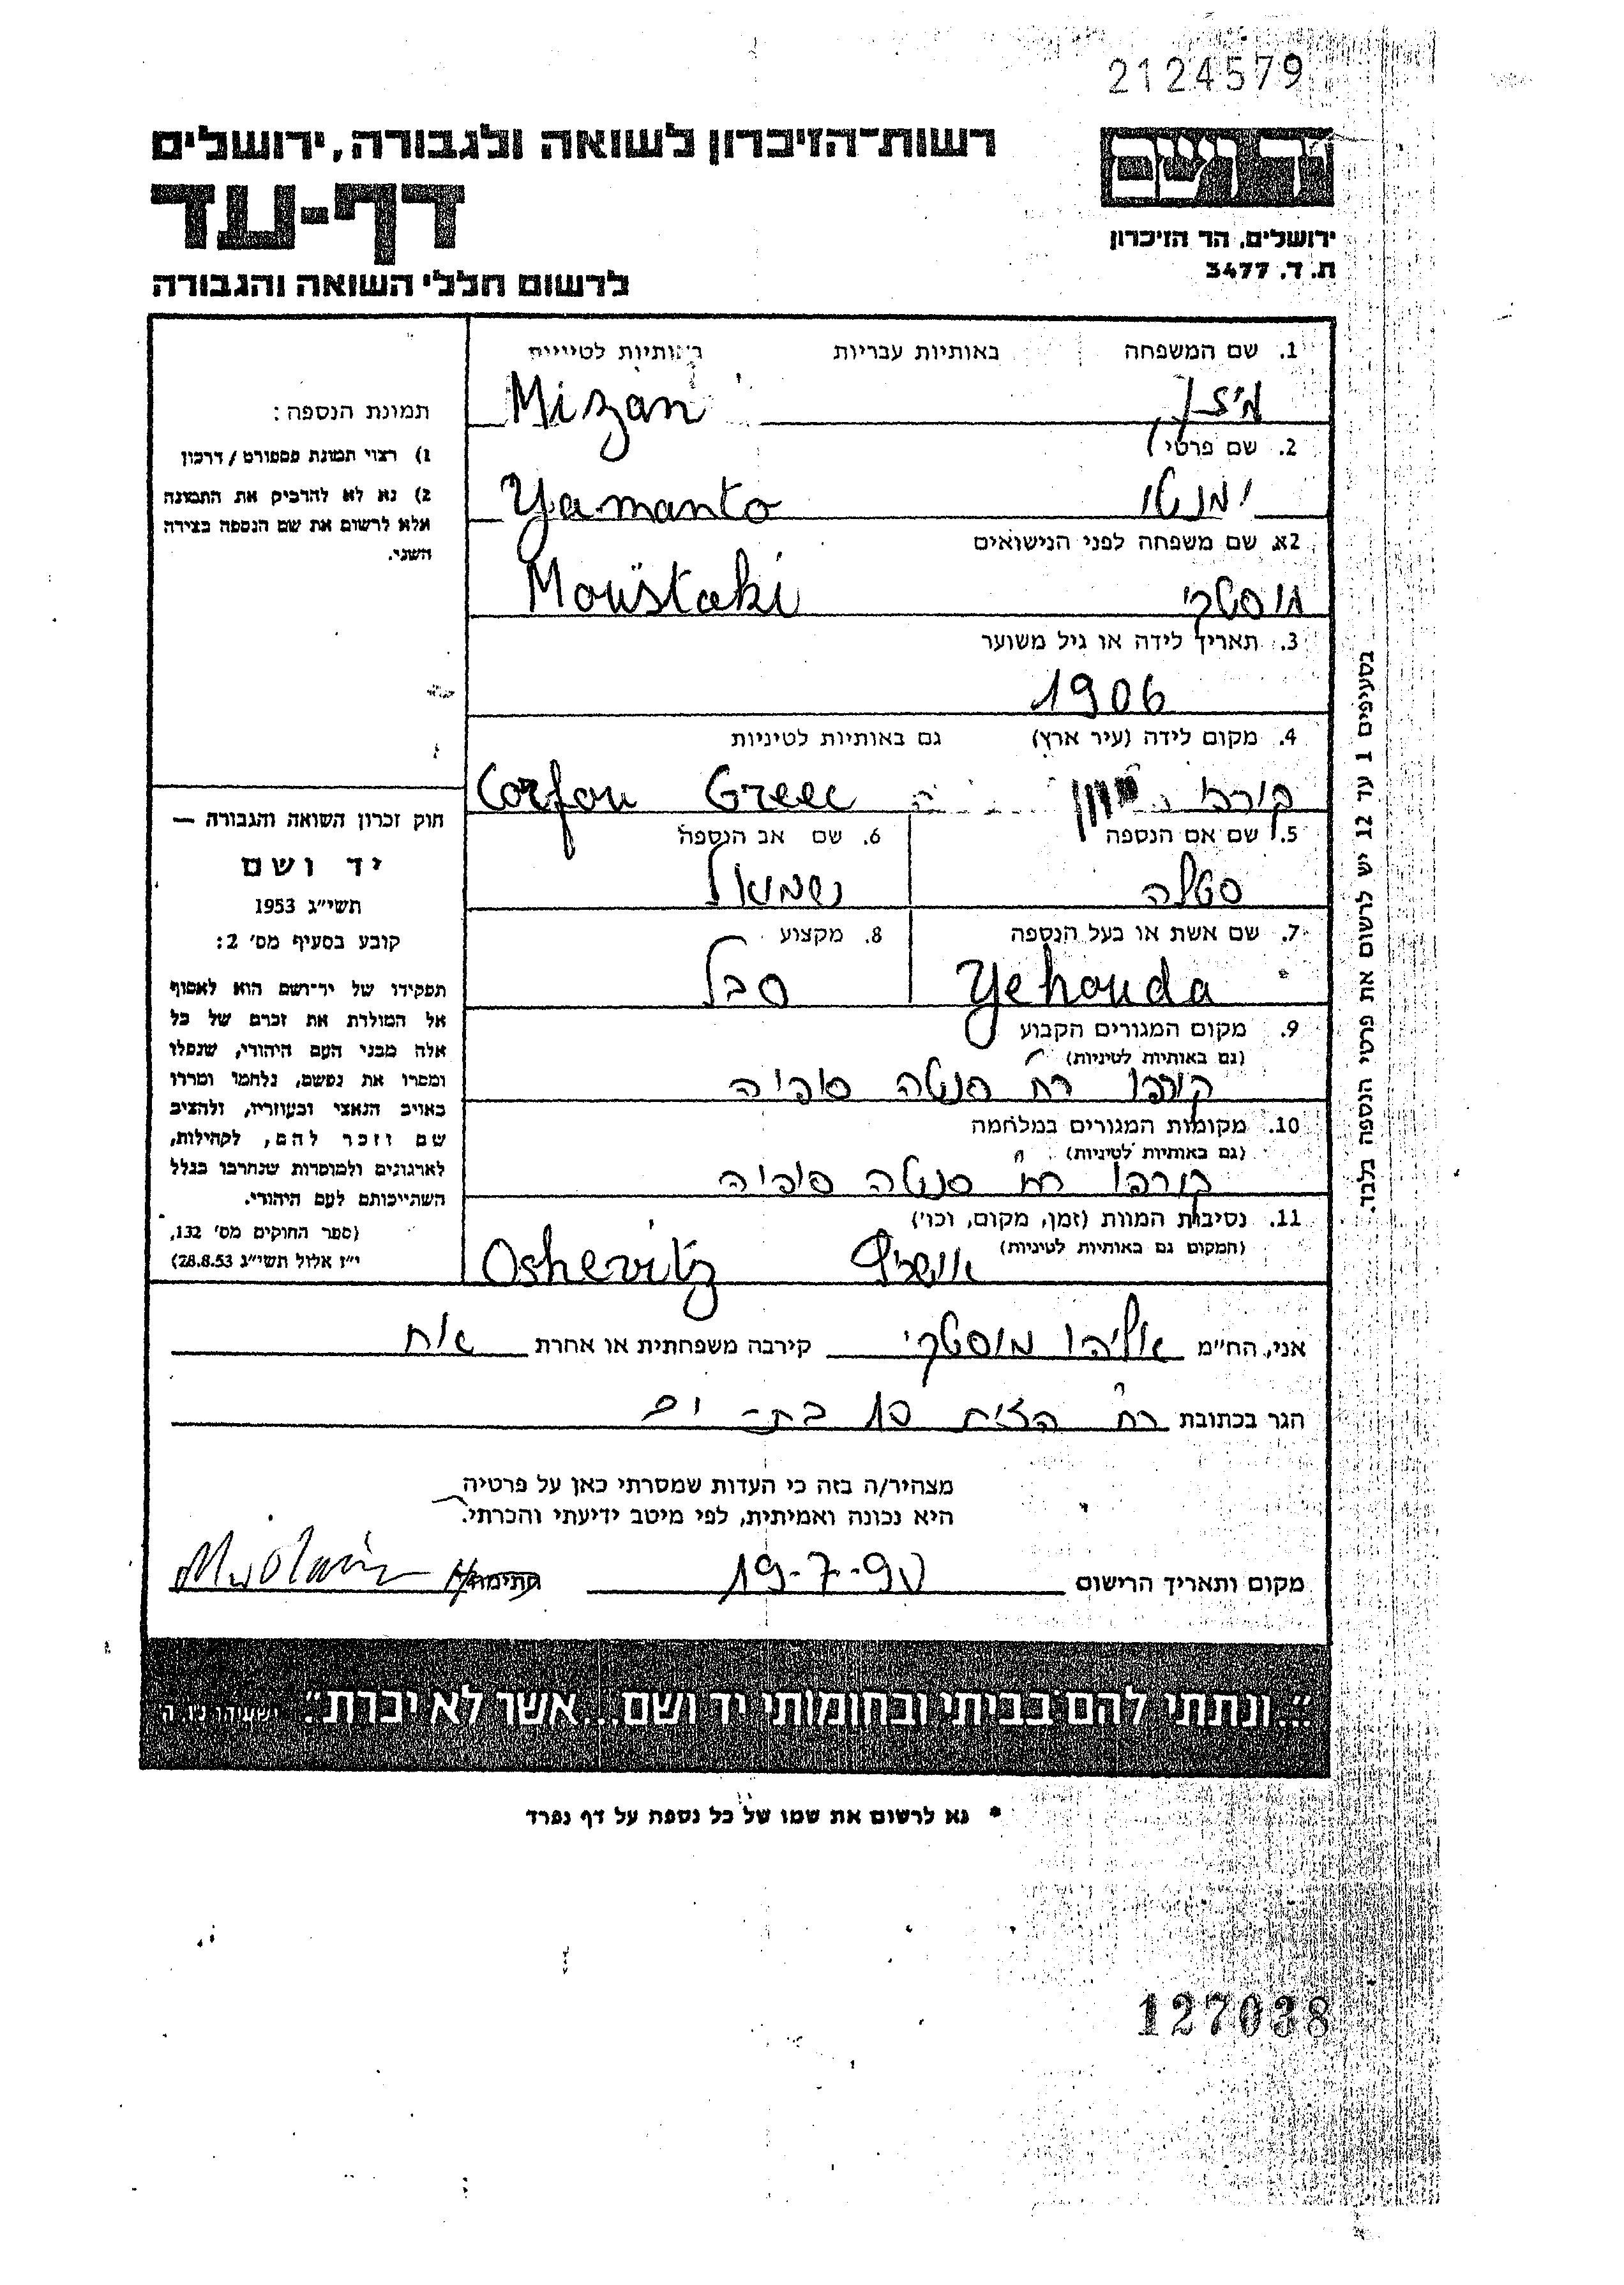 2124579
רשות-הזיכרון לשואה ולגבורה, ירושלים
יד ושם
דף-עד
ירושלים, הר הזיכרון
ת. ד. 3477
לרשום חללי השואה והגבורה
תמונת הנספה:
1) רצוי תמונת פספורט / דרכון
2) נא לא להדביק את התמונה
אלא לרשום את שם הנספה בצידה
השני.
חוק זכרון השואה והגבורה —
יד ושם
תשי״ג 1953
קובע בסעיף מס׳ 2:
תפקידו של יד-ושם הוא לאסוף
אל המולדת את זכרם של כל
אלה מבני העם היהודי, שנפלו
ומסרו את נפשם, נלחמו ומרדו
באויב הנאצי ובעוזריו, ולהציב
שם וזכר להם, לקהילות,
לארגונים ולמוסדות שנחרבו בגלל
השתייכותם לעם היהודי.
(ספר החוקים מס׳ 132,
י״ז אלול תשי״ג 28.8.53)
1. שם המשפחה באותיות עבריות באותיות לטיניות
מיזן Mizan
2. שם פרטי
ימנטו Yamanto
2א. שם משפחה לפני הנישואים
מוסטקי Moustaki
3. תאריך לידה או גיל משוער
1906
4. מקום לידה (עיר ארץ) גם באותיות לטיניות
קורפו יוון Corfou Greec
5. שם אם הנספה 6. שם אב הנספה
סטלה שמואל
7. שם אשת או בעל הנספה 8. מקצוע
Yehouda סבל
9. מקום המגורים הקבוע
(גם באותיות לטיניות)
קורפו רח סנטה סופיה
10. מקומות המגורים במלחמה
(גם באותיות לטיניות)
קורפו רח סנטה סופיה
11. נסיבות המוות (זמן, מקום, וכו׳)
(המקום גם באותיות לטיניות)
אושוויץ Oshevitz
אני, הח״מ אליהו מוסטקי קירבה משפחתית או אחרת אח
הגר בכתובת רח׳ בת-ים
מצהיר/ה בזה כי העדות שמסרתי כאן על פרטיה
היא נכונה ואמיתית, לפי מיטב ידיעתי והכרתי.
מקום ותאריך הרישום 19-7-90 חתימה
״...ונתתי להם בביתי ובחומותי יד ושם...אשר לא יכרת״. ישעיהו נו, ה
* נא לרשום את שמו של כל נספה על דף נפרד
בסעיפים 1 עד 12 יש לרשום את פרטי הנספה בלבד.
127038